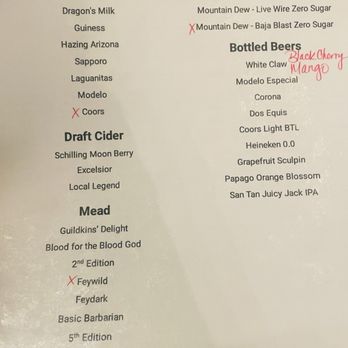 Dragon's Milk
Guiness
Hazing Arizona
Sapporo
Laguanitas
Modelo
X Coors
Draft Cider
Schilling Moon Berry
Excelsior
Local Legend
Mead
Guildkins' Delight
Blood for the Blood God
2nd Edition
X Feywild
Feydark
Basic Barbarian
5th Edition
Mountain Dew - Live Wire Zero Sugar
X Mountain Dew - Baja Blast Zero Sugar
Bottled Beers
White Claw Black Cherry
Mango
Modelo Especial
Corona
Dos Equis
Coors Light BTL
Heineken 0.0
Grapefruit Sculpin
Papago Orange Blossom
San Tan Juicy Jack IPA